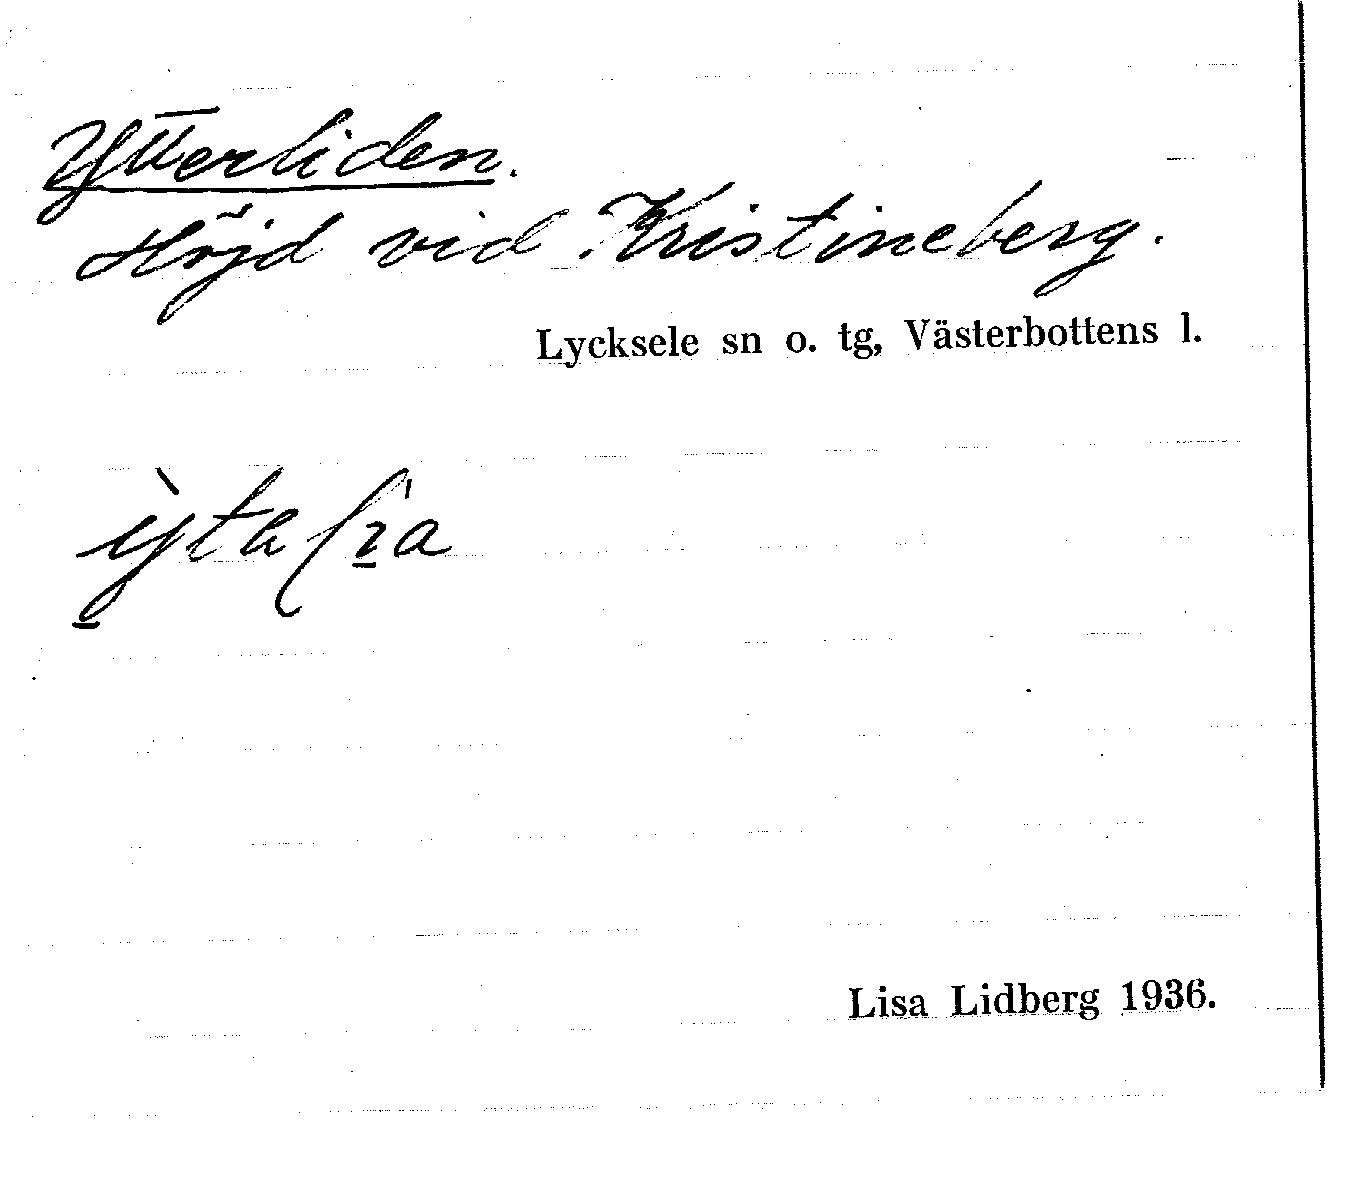 Ytterliden.
Höjd vid Kristineberg.
Lycksele sn o. tg, Västerbottens l.
Lisa Lidberg 1936.